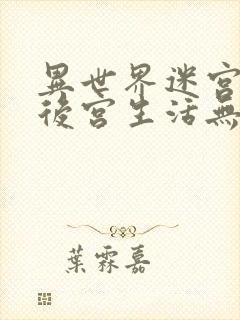 異世界迷宮
後宮生活無
葉霖嘉